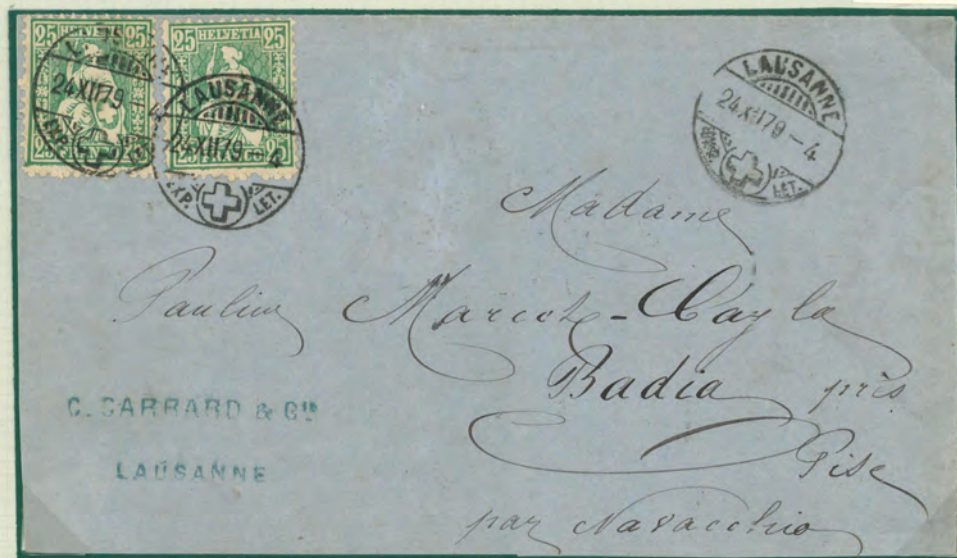 25 HELVETIA 25
25 25
25 HELVETIA 25
25 25
24 XII 79 - 4
EXP.
LAUSANNE
24 XII 79 - 4
EXP. LET.
LAUSANNE
24 XII 79 - 4
EXP. LET.
Madame
Pauline Marcot-Cayla
Badia près
Pise
par Navacchio
C. CARRARD & Cie
LAUSANNE